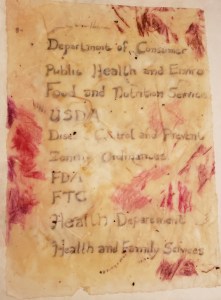 Department of Consumer
Public Health and Enviro
Food and Nutrition Service
USDA
Dis Control and Prevent
Zoning Ordinances
FDA
FTC
Health Department
Health and Family Services